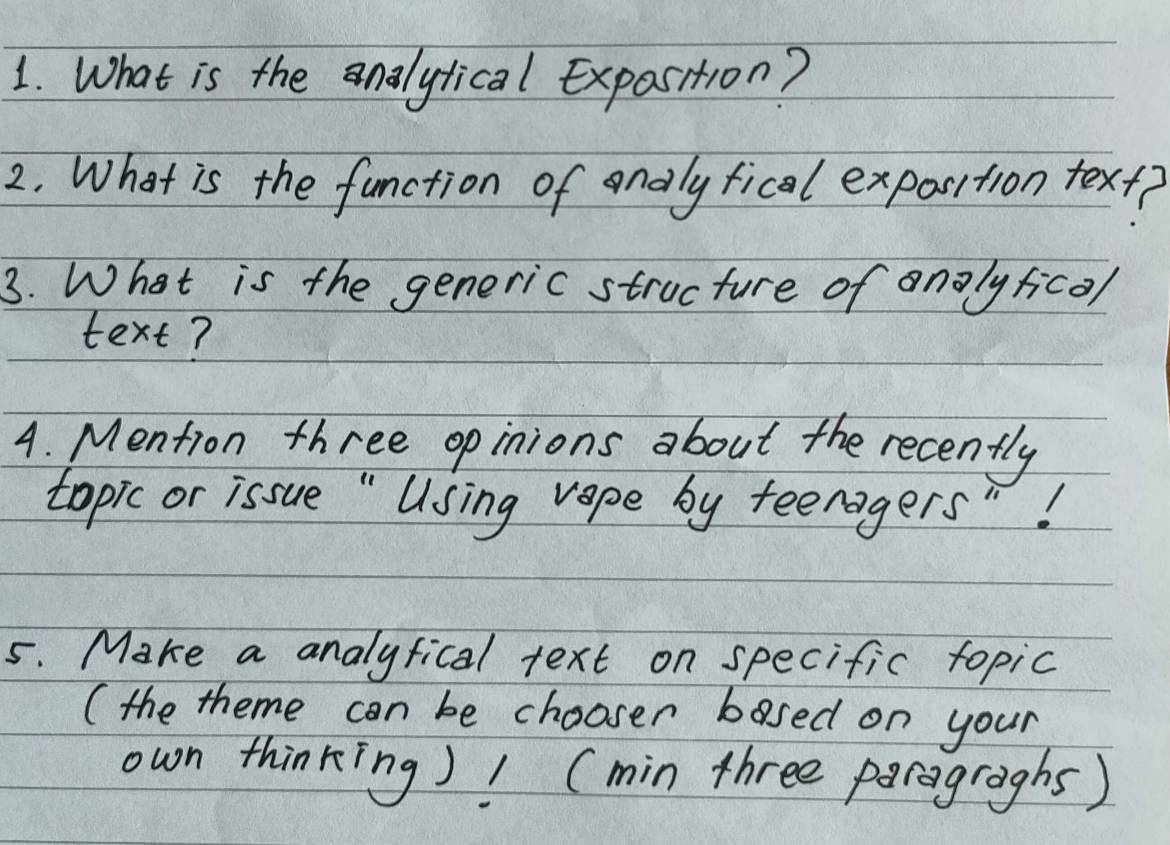 1. What is the analytical Exposition?
2. What is the function of analytical exposition text?
3. What is the generic structure of analytical
text?
4. Mention three opinions about the recently
topic or issue "Using vape by teenagers" !
5. Make a analytical text on specific topic
(the theme can be choosen based on your
own thinking) ! (min three paragraghs)